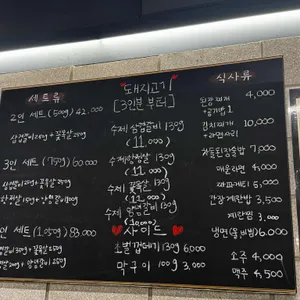 세트류
2인 세트 (500g) 42.000
3인 세트 (750g) 60.000
인 세트 (1.050g) 83.000
돼지고기
[3인분부터]
수제 삼겹갈비 130g
(11.000)
수제 항정살 130g
(11.000)
수제 꽃목살 130g
(11.000)
수제 양념갈비 130g
(10.000)
사이드
초벌껍데기 130g 6.000
막구이 100g 3.000
식사류
된장찌개 4,000
+공기밥 1
김치찌개 10,000
+라면사리
차돌된장말밥 7,000
매운라면 4,000
짜파게티 5,000
간장계란밥 3,500
계란찜 3,000
냉면(물,비빔) 6.000
소주 4,000
맥주 4,500